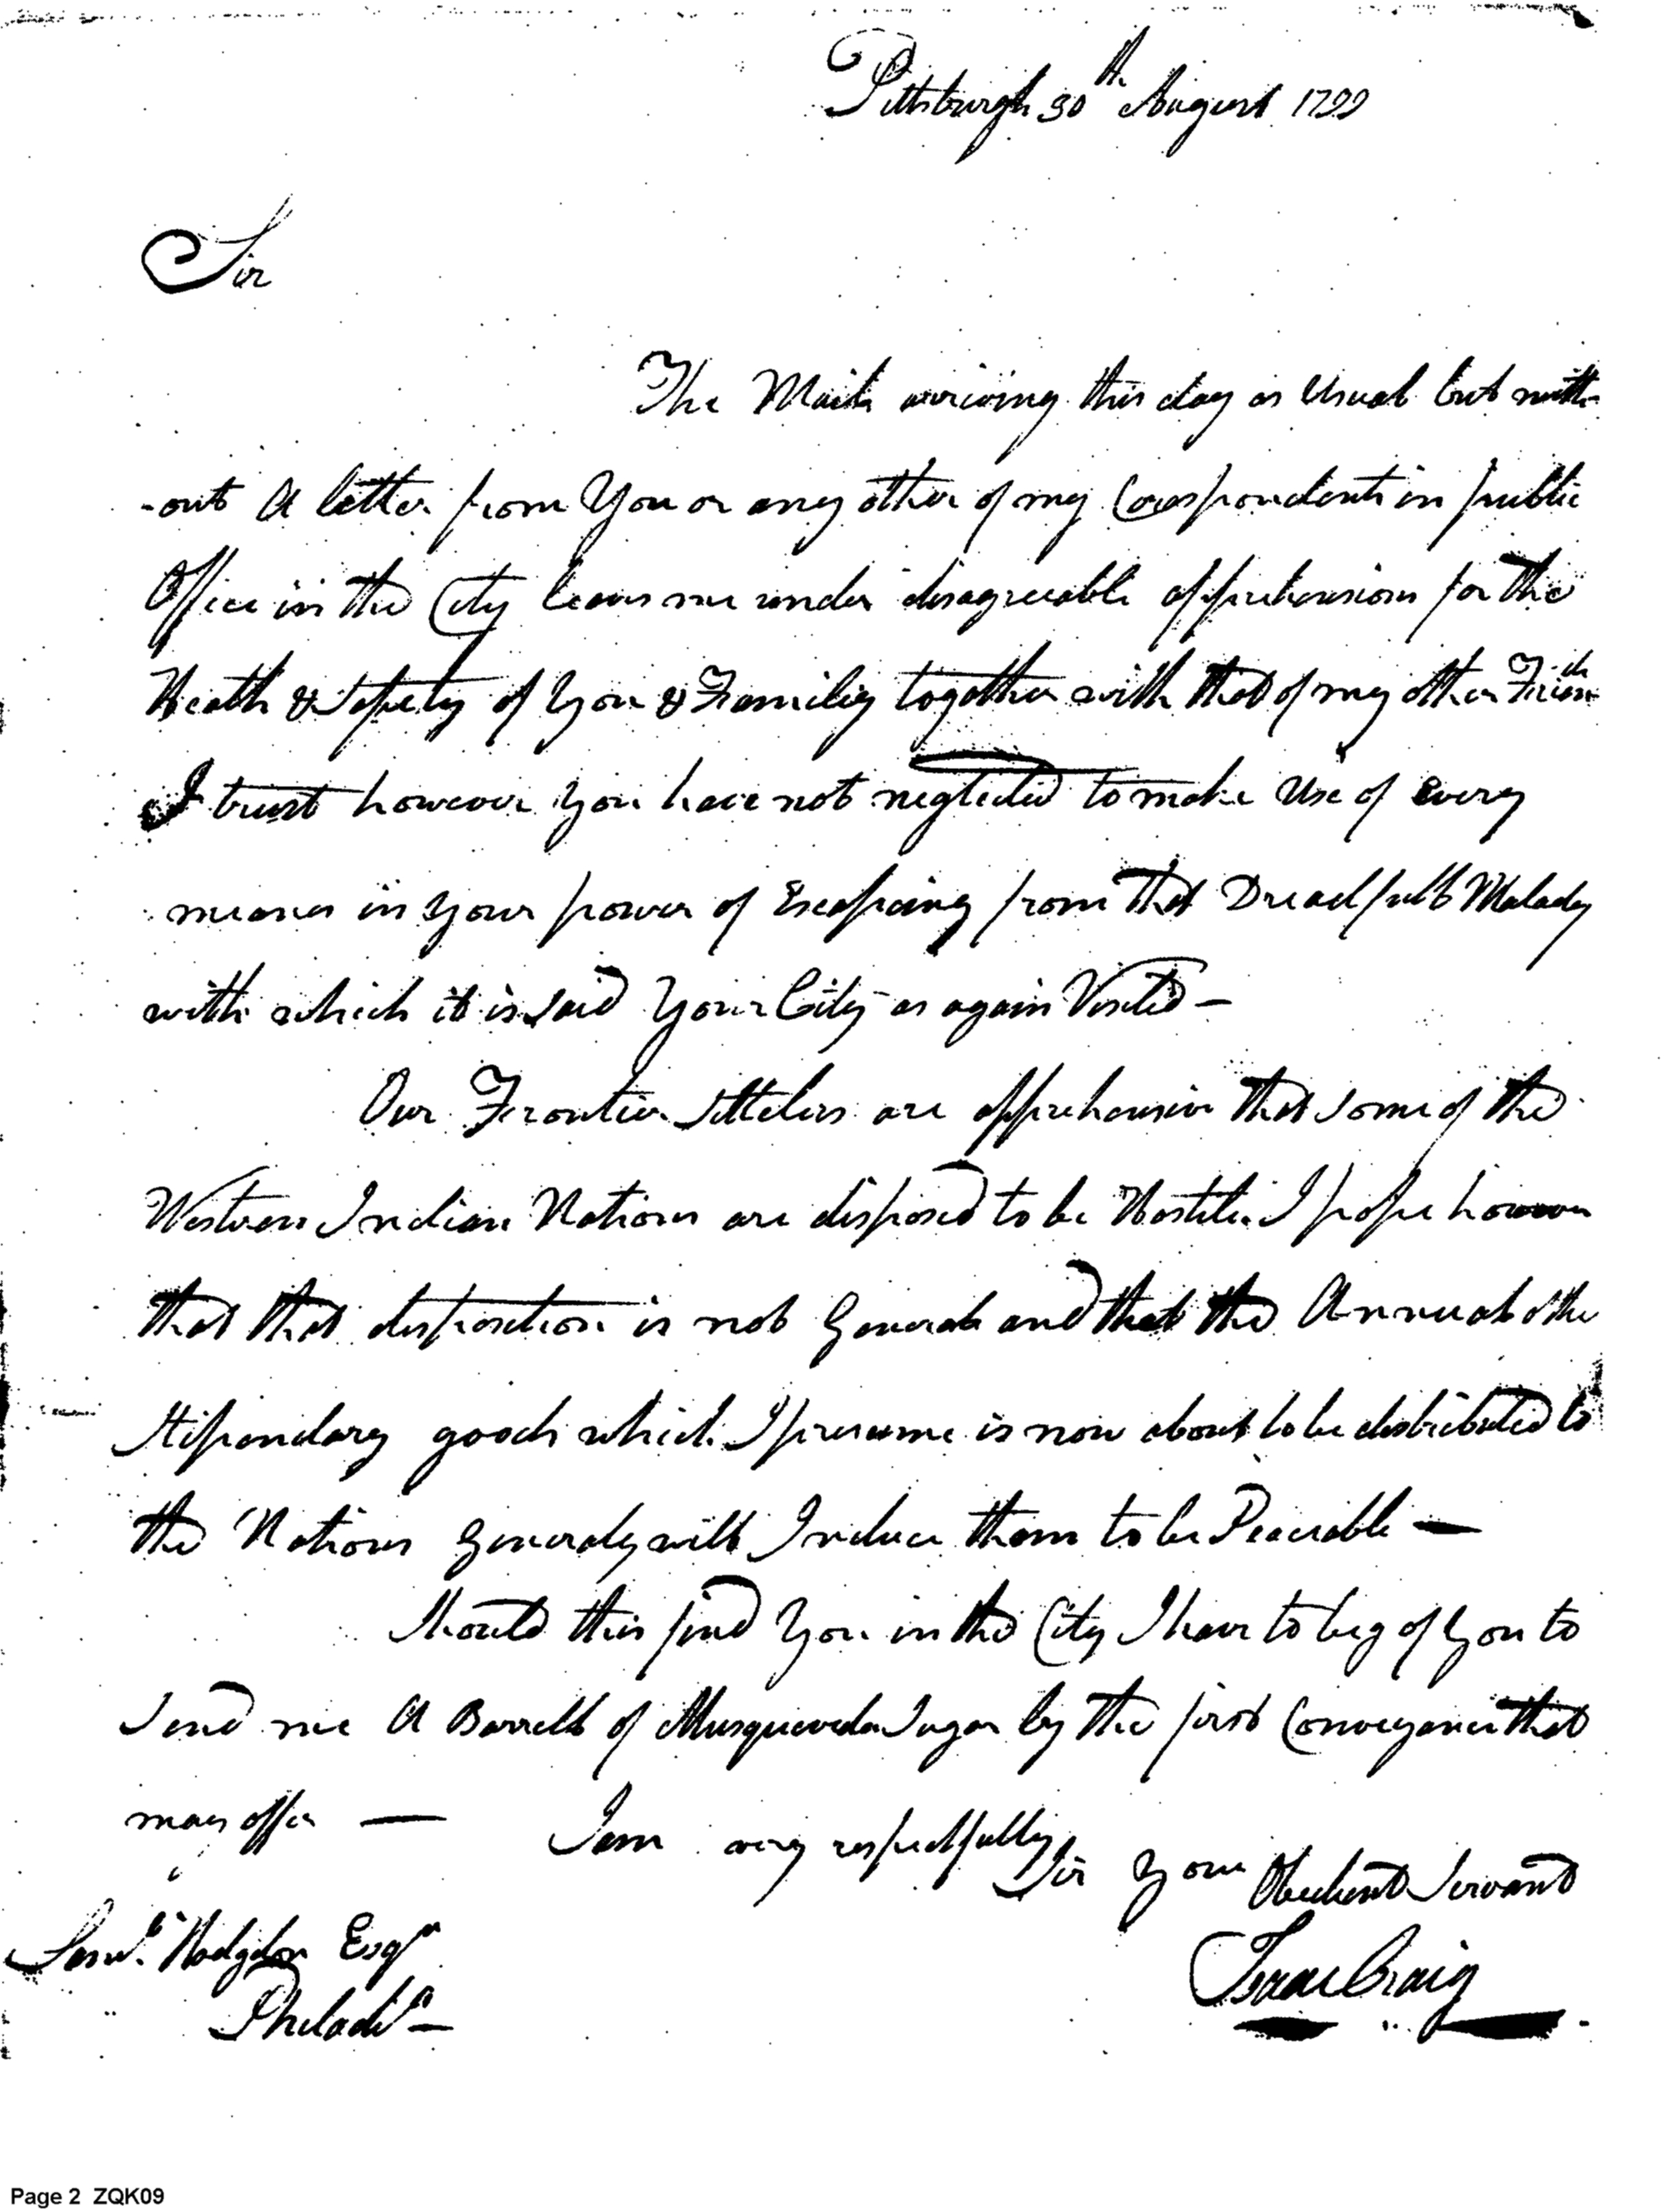 Pittsburgh 30th August 1799
Sir
The Mail arriving this day as Usual but with
-out A letter from You or any other of my Correspondents in public
Office in the City leaves me under disagreeable apprehensions for the
Health & Safety of You & Family together with that of my other Friends
I trust however You have not neglected to make Use of every
means in Your power of Escapeing from that Dreadfull Malady
with which it is said Your City as again Visited —
Our Frontier Settelers are apprehensive that some of the
Western Indian Nations are disposed to be Hostile. I hope however
that that disposition is not General and that the Annual & the
Stipendary goods which I presume is now about to be distributed to
the Nations Generaly will Induce them to be Peaceable —
Should this find You in the City I have to beg of You to
send me A Barrell of Musquevada Sugar by the first Conveyance that
may offer —
I am very respectfully
Sir Your Obedient Servant
Isaac Craig
Saml. Hodgdon Esqr
Philada —
Page 2 ZQK09